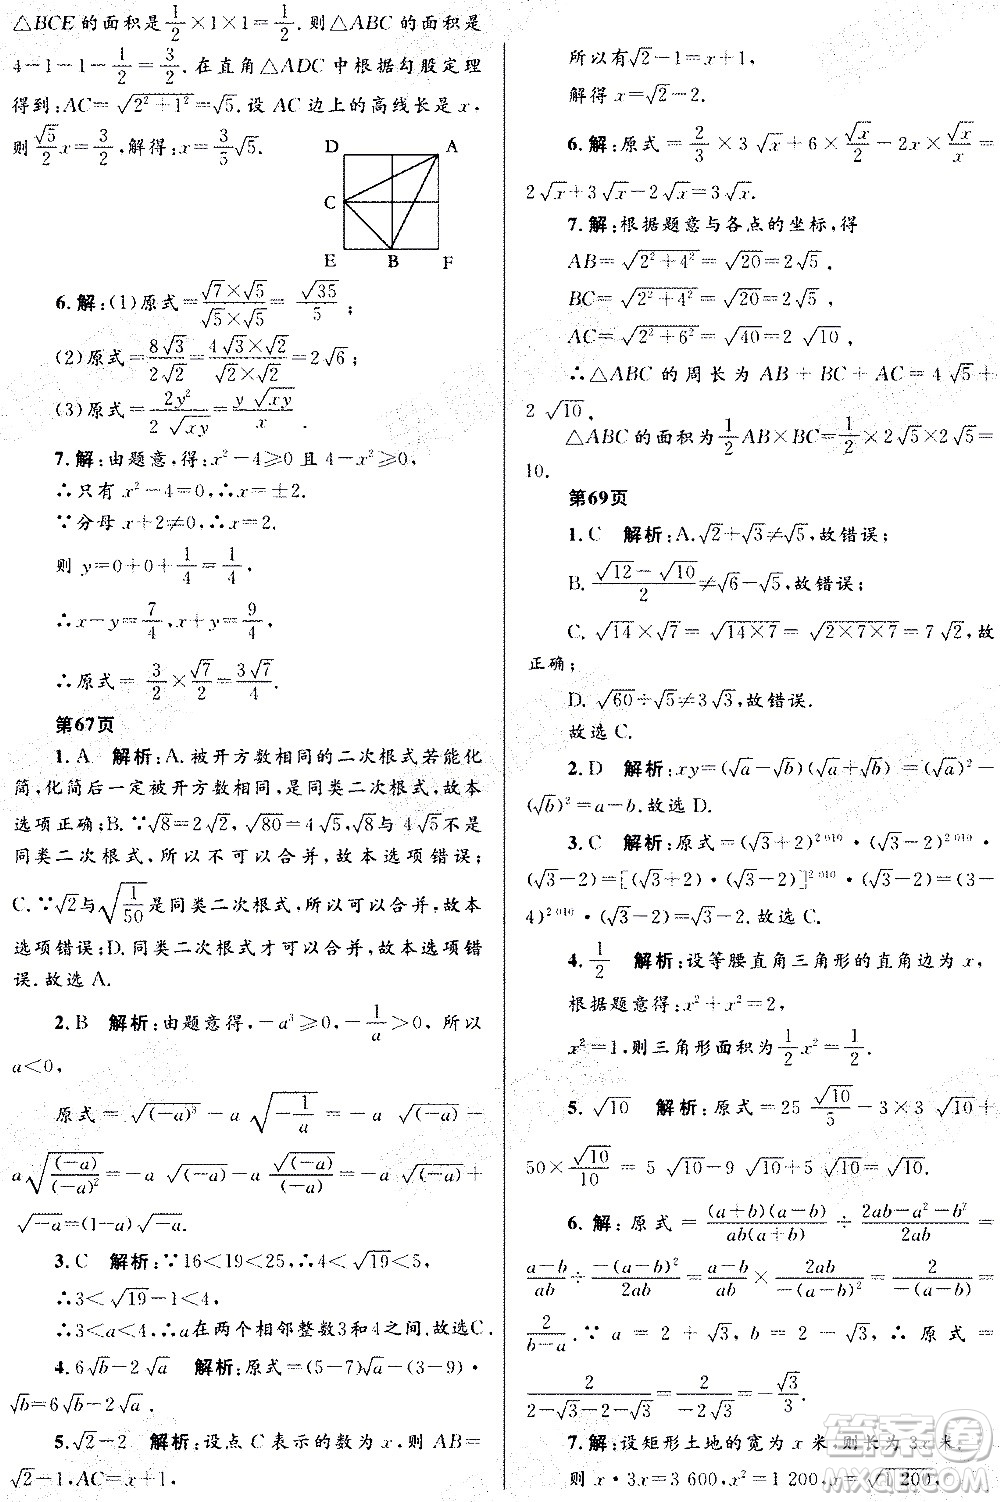 △BCE的面积是1/2×1×1=1/2.则△ABC的面积是
4-1-1-1/2=3/2.在直角△ADC中根据勾股定理
得到:AC=√(2²+1²)=√5.设AC边上的高线长是x,
则 √5/2 x=3/2,解得:x=3/5 √5.
D A
C
E B F
6.解:(1)原式=(√7×√5)/(√5×√5)=√35/5;
(2)原式=8√3/2√2=(4√3×√2)/(√2×√2)=2√6;
(3)原式=2y²/(2√xy)=y√xy/x.
7.解:由题意,得:x²-4≥0且4-x²≥0,
∴只有x²-4=0,∴x=±2.
∵分母x+2≠0,∴x=2.
则y=0+0+1/4=1/4,
∴x-y=7/4,x+y=9/4.
∴原式=3/2×√7/2=3√7/4.
第67页
1.A 解析:A.被开方数相同的二次根式若能化
简,化简后一定被开方数相同,是同类二次根式,故本
选项正确;B.∵√8=2√2,√80=4√5,√8与4√5不是
同类二次根式,所以不可以合并,故本选项错误;
C.∵√2与√(1/50)是同类二次根式,所以可以合并,故本
选项错误;D.同类二次根式才可以合并,故本选项错
误.故选A.
2.B 解析:由题意得,-a³≥0,-1/a>0,所以
a<0,
原式=√(-a)³-a√(-1/a)=-a√-a-
a√((-a)/(-a)²)=-a√-a-a·√(-a)/(-a)=-a√-a+
√-a=(1-a)√-a.
3.C 解析:∵16<19<25,∴4<√19<5,
∴3<√19-1<4,
∴3<a<4,∴a在两个相邻整数3和4之间.故选C.
4.6√b-2√a 解析:原式=(5-7)√a-(3-9)·
√b=6√b-2√a.
5.√2-2 解析:设点C表示的数为x,则AB=
√2-1,AC=x+1,
所以√2-1=x+1,
解得x=√2-2.
6.解:原式=2/3×3√x+6×√x/2-2x×√x/x=
2√x+3√x-2√x=3√x.
7.解:根据题意与各点的坐标,得
AB=√(2²+4²)=√20=2√5,
BC=√(2²+4²)=√20=2√5,
AC=√(2²+6²)=√40=2√10,
∴△ABC的周长为AB+BC+AC=4√5+
2√10,
△ABC的面积为1/2AB×BC=1/2×2√5×2√5=
10.
第69页
1.C 解析:A.√2+√3≠√5,故错误;
B.(√12-√10)/2≠√6-√5,故错误;
C.√14×√7=√(14×7)=√(2×7×7)=7√2,故
正确;
D.√60÷√5≠3√3,故错误.
故选C.
2.D 解析:xy=(√a-√b)(√a+√b)=(√a)²-
(√b)²=a-b.故选D.
3.C 解析:原式=(√3+2)²⁰¹⁰·(√3-2)²⁰¹⁰·
(√3-2)=[(√3+2)·(√3-2)]²⁰¹⁰·(√3-2)=(3-
4)²⁰¹⁰·(√3-2)=√3-2.故选C.
4.1/2 解析:设等腰直角三角形的直角边为x,
根据题意得:x²+x²=2,
x²=1,则三角形面积为1/2x²=1/2.
5.√10 解析:原式=25√10/5-3×3√10+
50×√10/10=5√10-9√10+5√10=√10.
6.解:原式=(a+b)(a-b)/ab(a+b)÷(2ab-a²-b²)/2ab=
(a-b)/ab÷-(a-b)²/2ab=(a-b)/ab×2ab/-(a-b)²=2/-(a-b)=
2/(b-a).∵a=2+√3,b=2-√3,∴原式=
2/(2-√3-2-√3)=2/(-2√3)=-√3/3.
7.解:设矩形土地的宽为x米,则长为3x米,
则x·3x=3 600,x²=1 200,x=√1 200,
答案圈
MXQE.COM